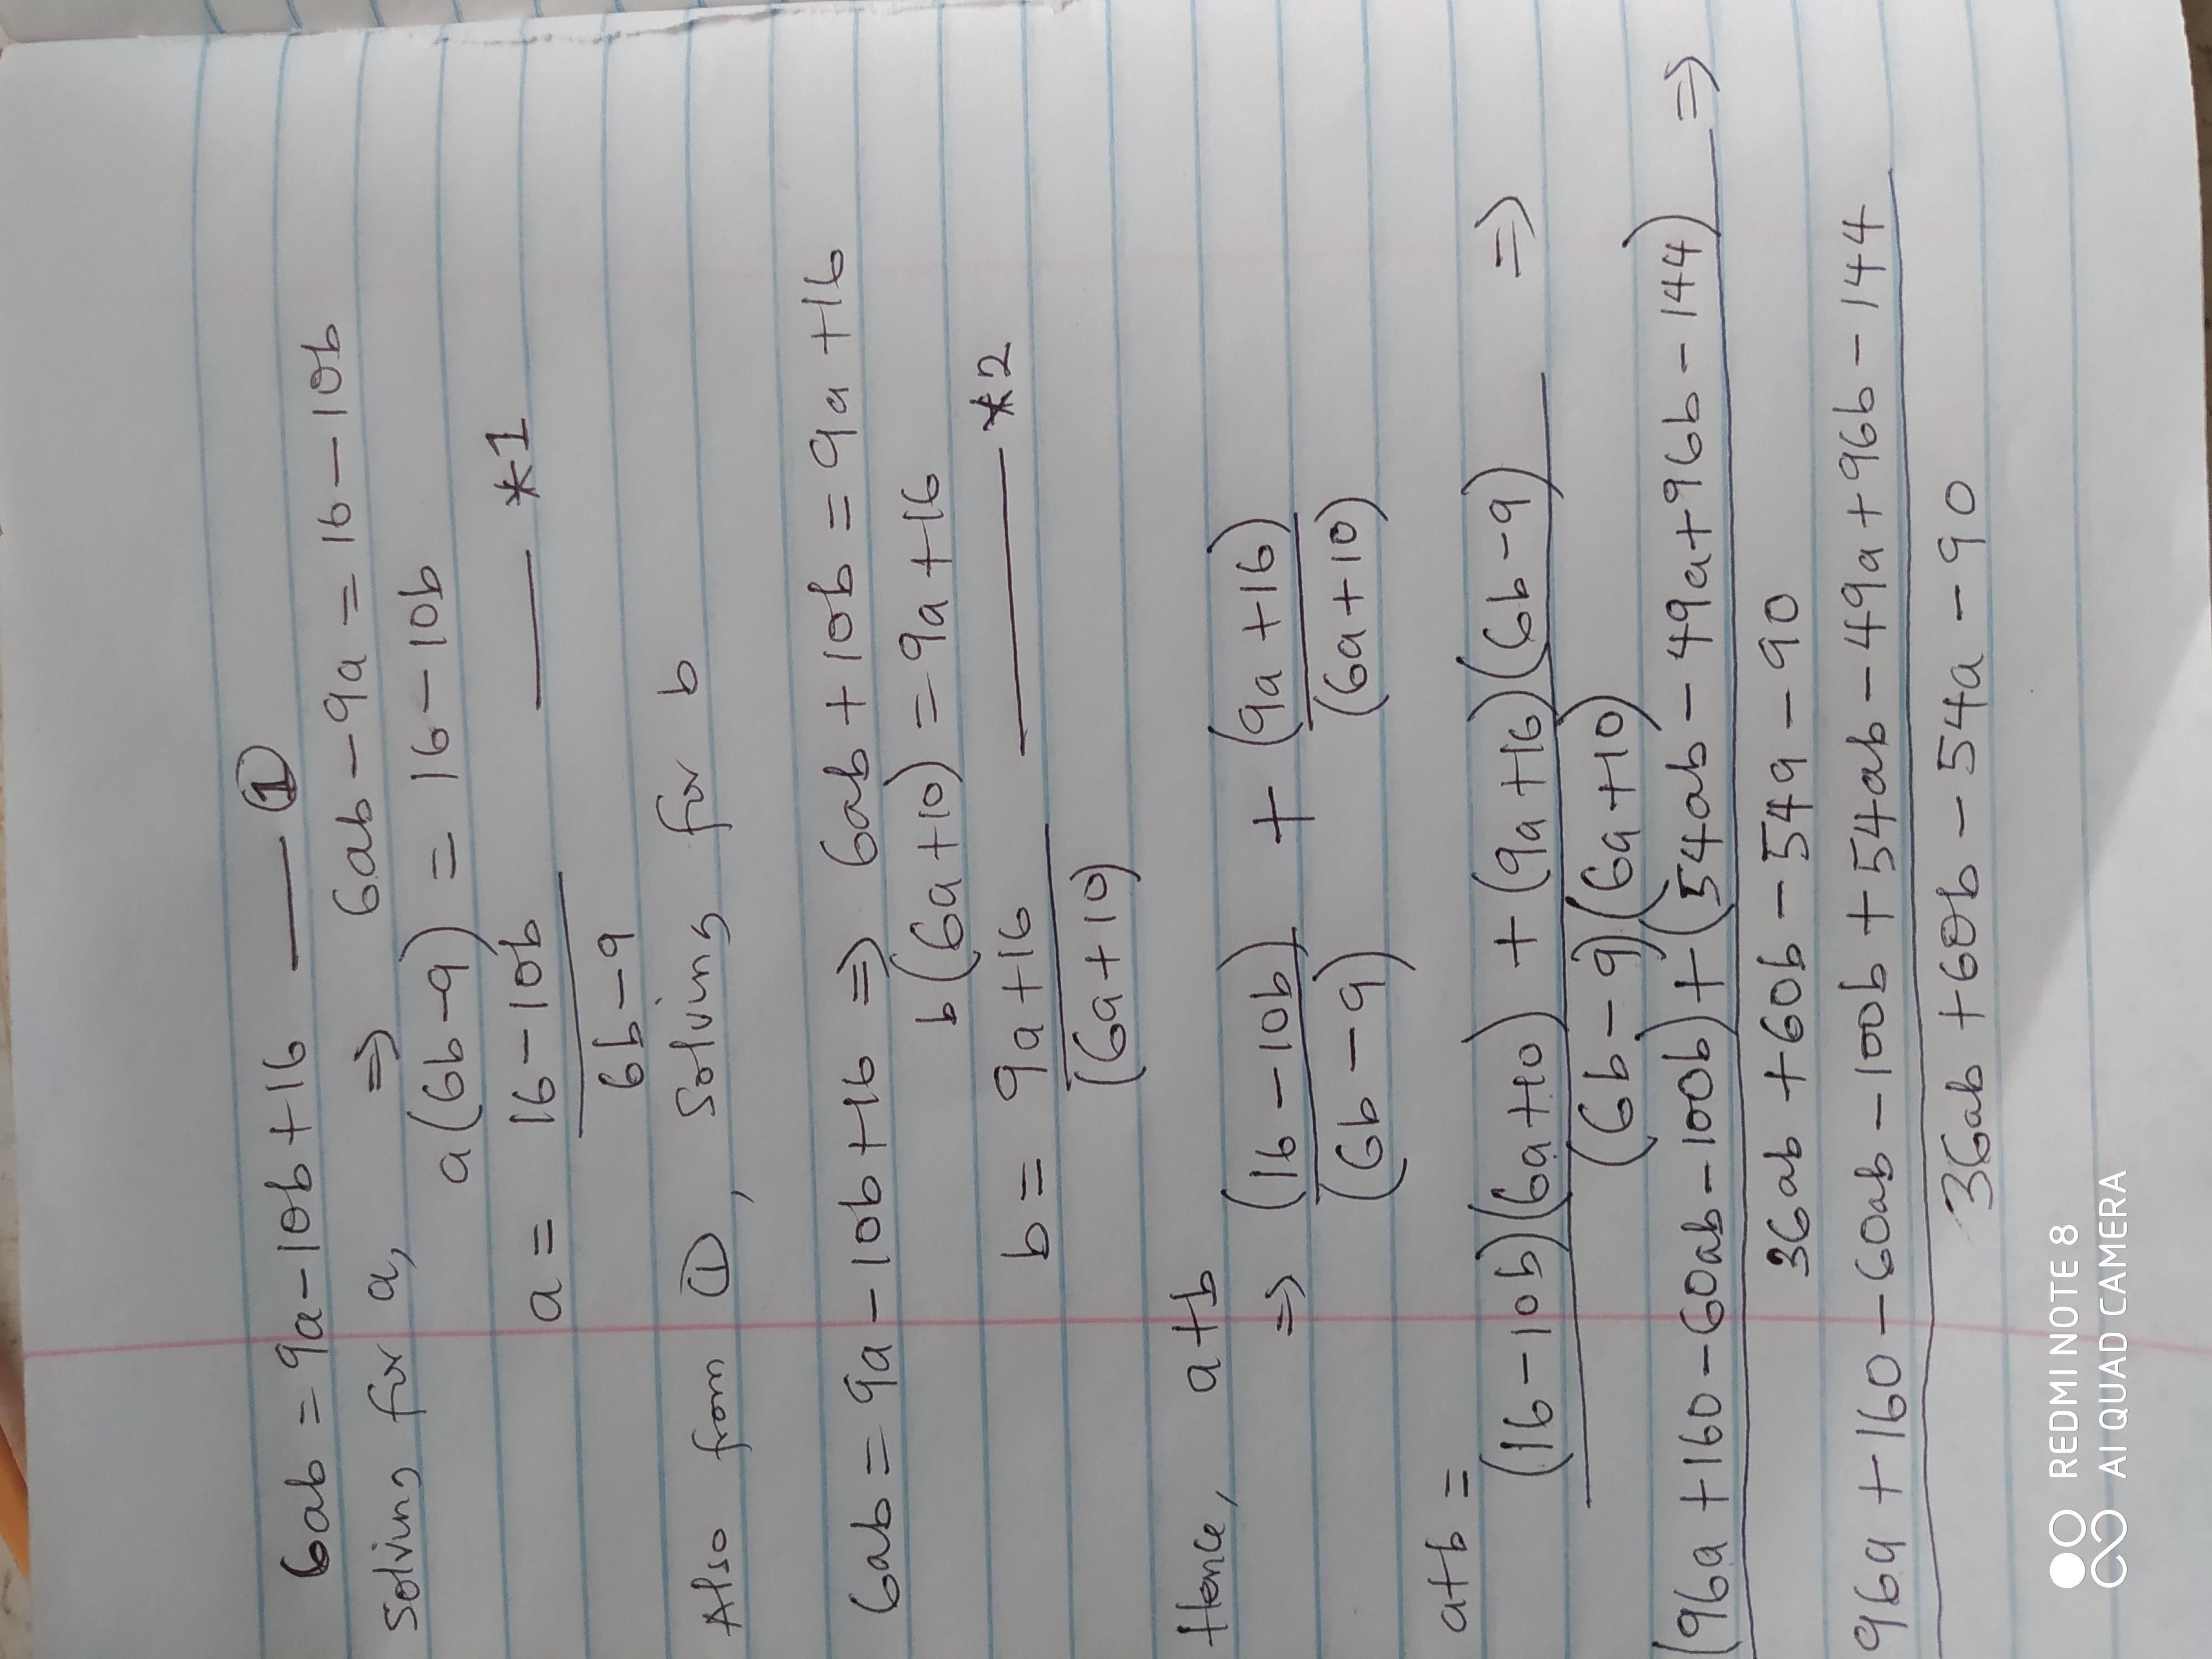 6ab = 9a - 10b + 16 —— ①
Solving for a, ⇒ 6ab - 9a = 16 - 10b
a(6b - 9) = 16 - 10b
a = 16 - 10b —— *1
6b - 9
Also from ①, Solving for b
6ab = 9a - 10b + 16 ⇒ 6ab + 10b = 9a + 16
b(6a + 10) = 9a + 16
b = 9a + 16 —— *2
(6a + 10)
Hence, a + b
⇒ (16 - 10b) + (9a + 16)
(6b - 9) (6a + 10)
a+b =
(16 - 10b)(6a + 10) + (9a + 16)(6b - 9) ⇒
(6b - 9)(6a + 10)
(96a + 160 - 60ab - 100b) + (54ab - 49a + 96b - 144) ⇒
36ab + 60b - 54a - 90
96a + 160 - 60ab - 100b + 54ab - 49a + 96b - 144
36ab + 60b - 54a - 90
REDMI NOTE 8
AI QUAD CAMERA